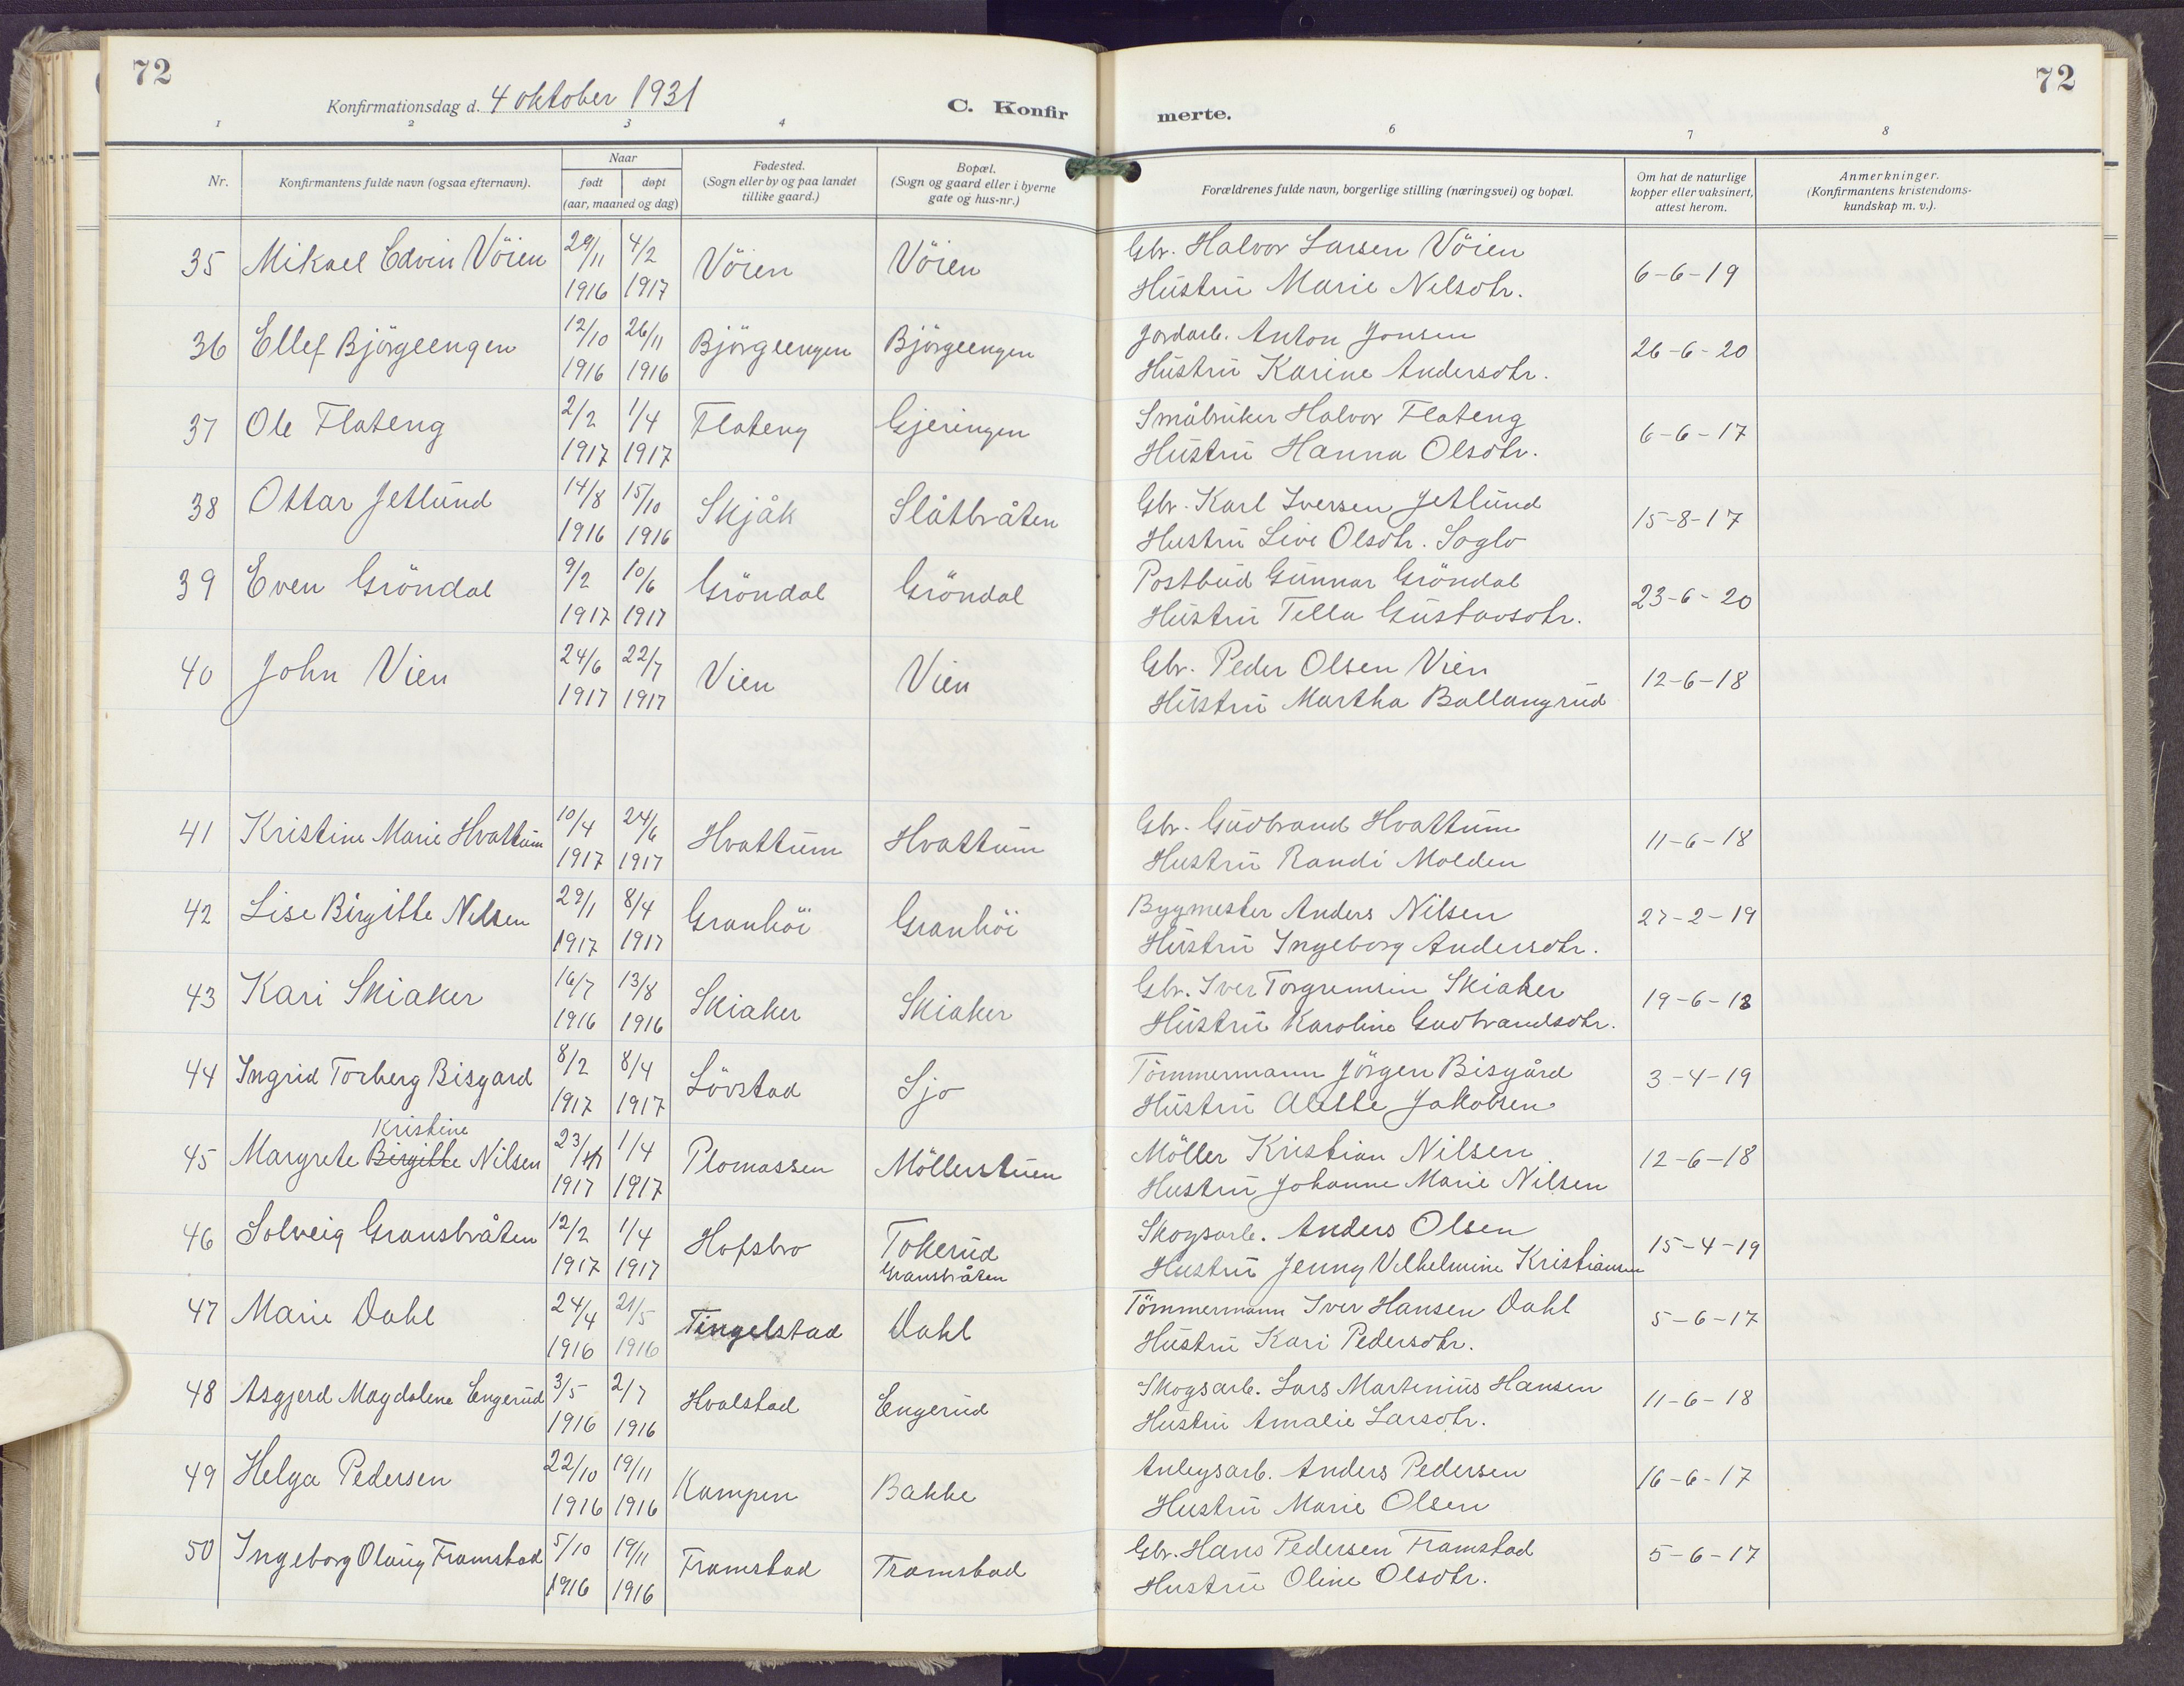 72
72
Konfirmationsdag d. 4 oktober 1931
C. Konfirmerte.
1 2 3 4 6 7 8
Nr.
Konfirmantens fulde navn (ogsaa efternavn).
Naar
født døpt
(aar, maaned og dag)
Fødested.
(Sogn eller by og paa landet
tillike gaard.)
Bopæl.
(Sogn og gaard eller i byerne
gate og hus-nr.)
Forældrenes fulde navn, borgerlige stilling (næringsvei) og bopæl.
Om hat de naturlige
kopper eller vaksinert,
attest herom.
Anmerkninger.
(Konfirmantens kristendoms-
kundskap m. v.).
35 Mikael Edvin Vöien 29/11 1916 4/2 1917 Vöien Vöien Gbr. Halvor Larsen Vöien
Hustru Marie Nilsdtr. 6-6-19
36 Ellef Björgeengen 12/10 1916 26/11 1916 Björgeengen Björgeengen Jordarb. Anton Jonsen
Hustru Karine Andersdtr. 26-6-20
37 Ole Flateng 2/2 1917 1/4 1917 Flateng Gjeringen Småbruker Halvor Flateng
Hustru Hanna Olsdtr. 6-6-17
38 Ottar Jetlund 14/8 1916 15/10 1916 Skjåk Slåtbråten Gbr. Karl Iversen Jetlund
Hustru Live Olsdtr. Soglo 15-8-17
39 Even Gröndal 9/2 1917 10/6 1917 Gröndal Gröndal Postbud Gunnar Gröndal
Hustru Tella Gustavsdtr. 23-6-20
40 John Vien 24/6 1917 22/7 1917 Vien Vien Gbr. Peder Olsen Vien
Hustru Martha Ballangrud 12-6-18
41 Kristine Marie Hvattum 10/4 1917 24/6 1917 Hvattum Hvattum Gbr. Gudbrand Hvattum
Hustru Randi Molden 11-6-18
42 Lise Birgitte Nilsen 29/1 1917 8/4 1917 Granhöi Granhöi Bygmester Anders Nilsen
Hustru Ingeborg Andersdtr. 27-2-19
43 Kari Skiaker 16/7 1916 13/8 1916 Skiaker Skiaker Gbr. Iver Torgrimsen Skiaker
Hustru Karoline Gudbrandsdtr. 19-6-18
44 Ingrid Torberg Bisgard 8/2 1917 8/4 1917 Lövstad Sjo Tömmermann Jörgen Bisgård
Hustru Alette Jakobsen 3-4-19
Kristine
45 Margrete Birgitte Nilsen 23/1 1917 1/4 1917 Plomassen Möllerstuen Möller Kristian Nilsen
Hustru Johanne Marie Nilsen 12-6-18
46 Solveig Gransbråten 12/2 1917 1/4 1917 Hofsbro Tokerud
Gransbråten Skogsarb. Anders Olsen
Hustru Jenny Vilhelmine Kristiansen 15-4-19
47 Marie Dahl 24/4 1916 21/5 1916 Tingelstad Dahl Tömmermann Iver Hansen Dahl
Hustru Kari Pedersdtr. 5-6-17
48 Asgjerd Magdalene Engerud 3/5 1916 2/7 1916 Hvalstad Engerud Skogsarb. Lars Martinius Hansen
Hustru Amalie Larsdtr. 11-6-18
49 Helga Pedersen 22/10 1916 19/11 1916 Kampen Bakke Anlegsarb. Anders Pedersen
Hustru Marie Olsen 16-6-17
50 Ingeborg Olaug Framstad 5/10 1916 19/11 1916 Framstad Framstad Gbr. Hans Pedersen Framstad
Hustru Oline Olsdtr. 5-6-17